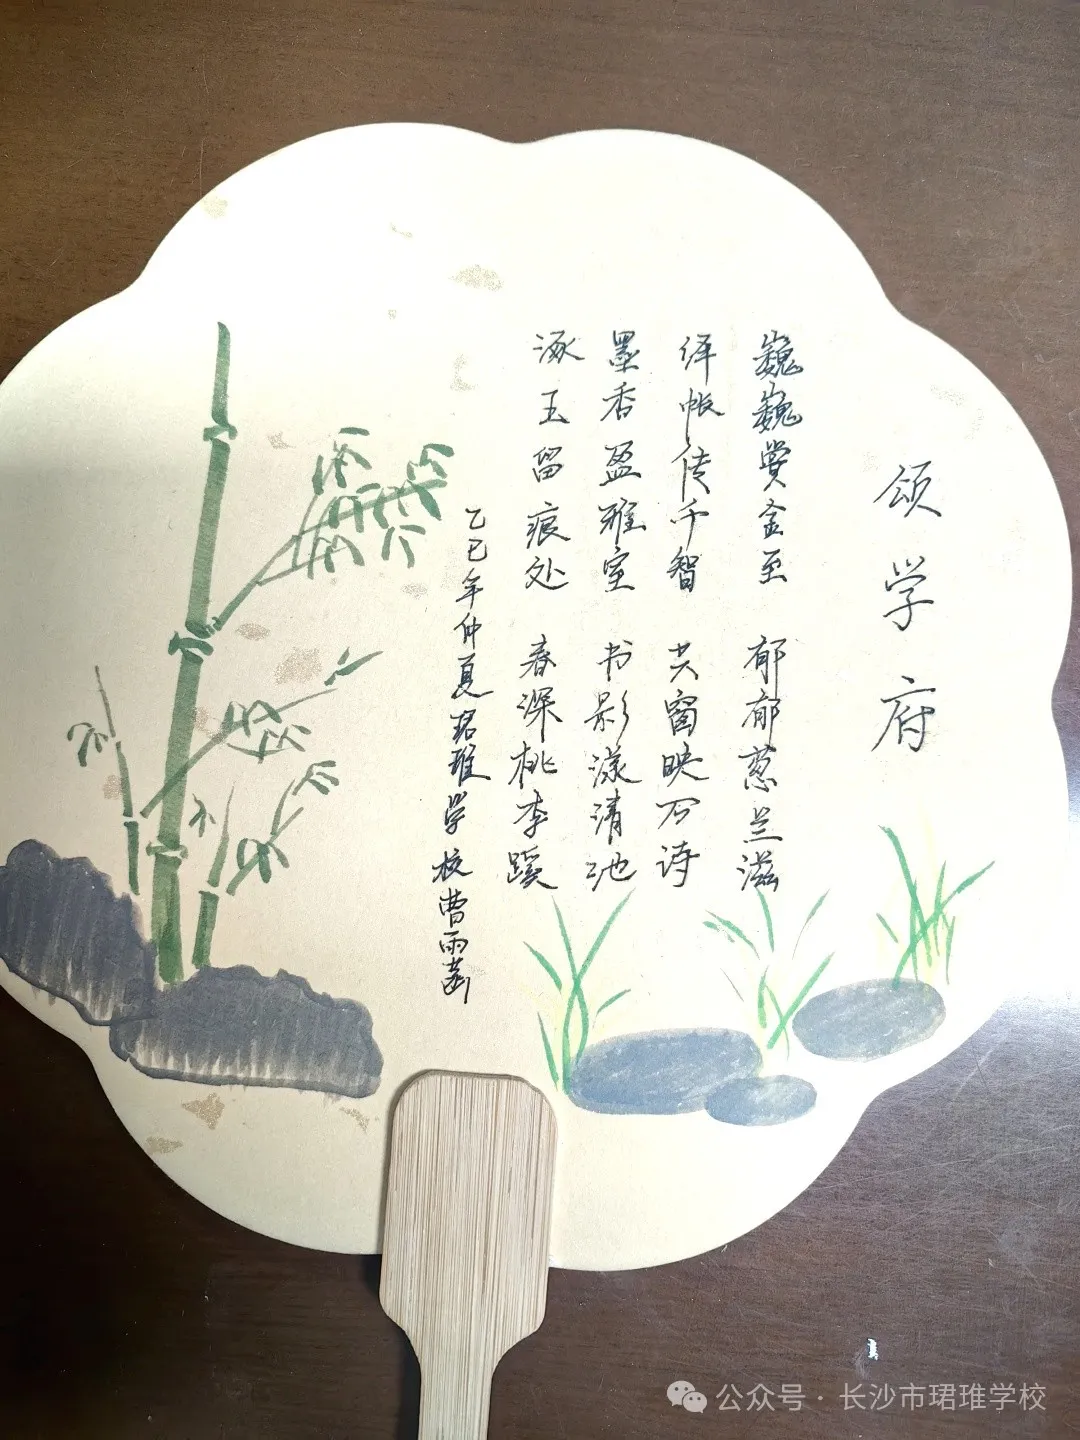 颂学府
巍巍黉金至 郁郁蕙兰滋
绛帐传千智 共窗映万诗
墨香盈雅室 书影漾清池
琢玉留痕处 春深桃李蹊
乙巳年仲夏珺琟学校曹雨菡
公众号·长沙市珺琟学校